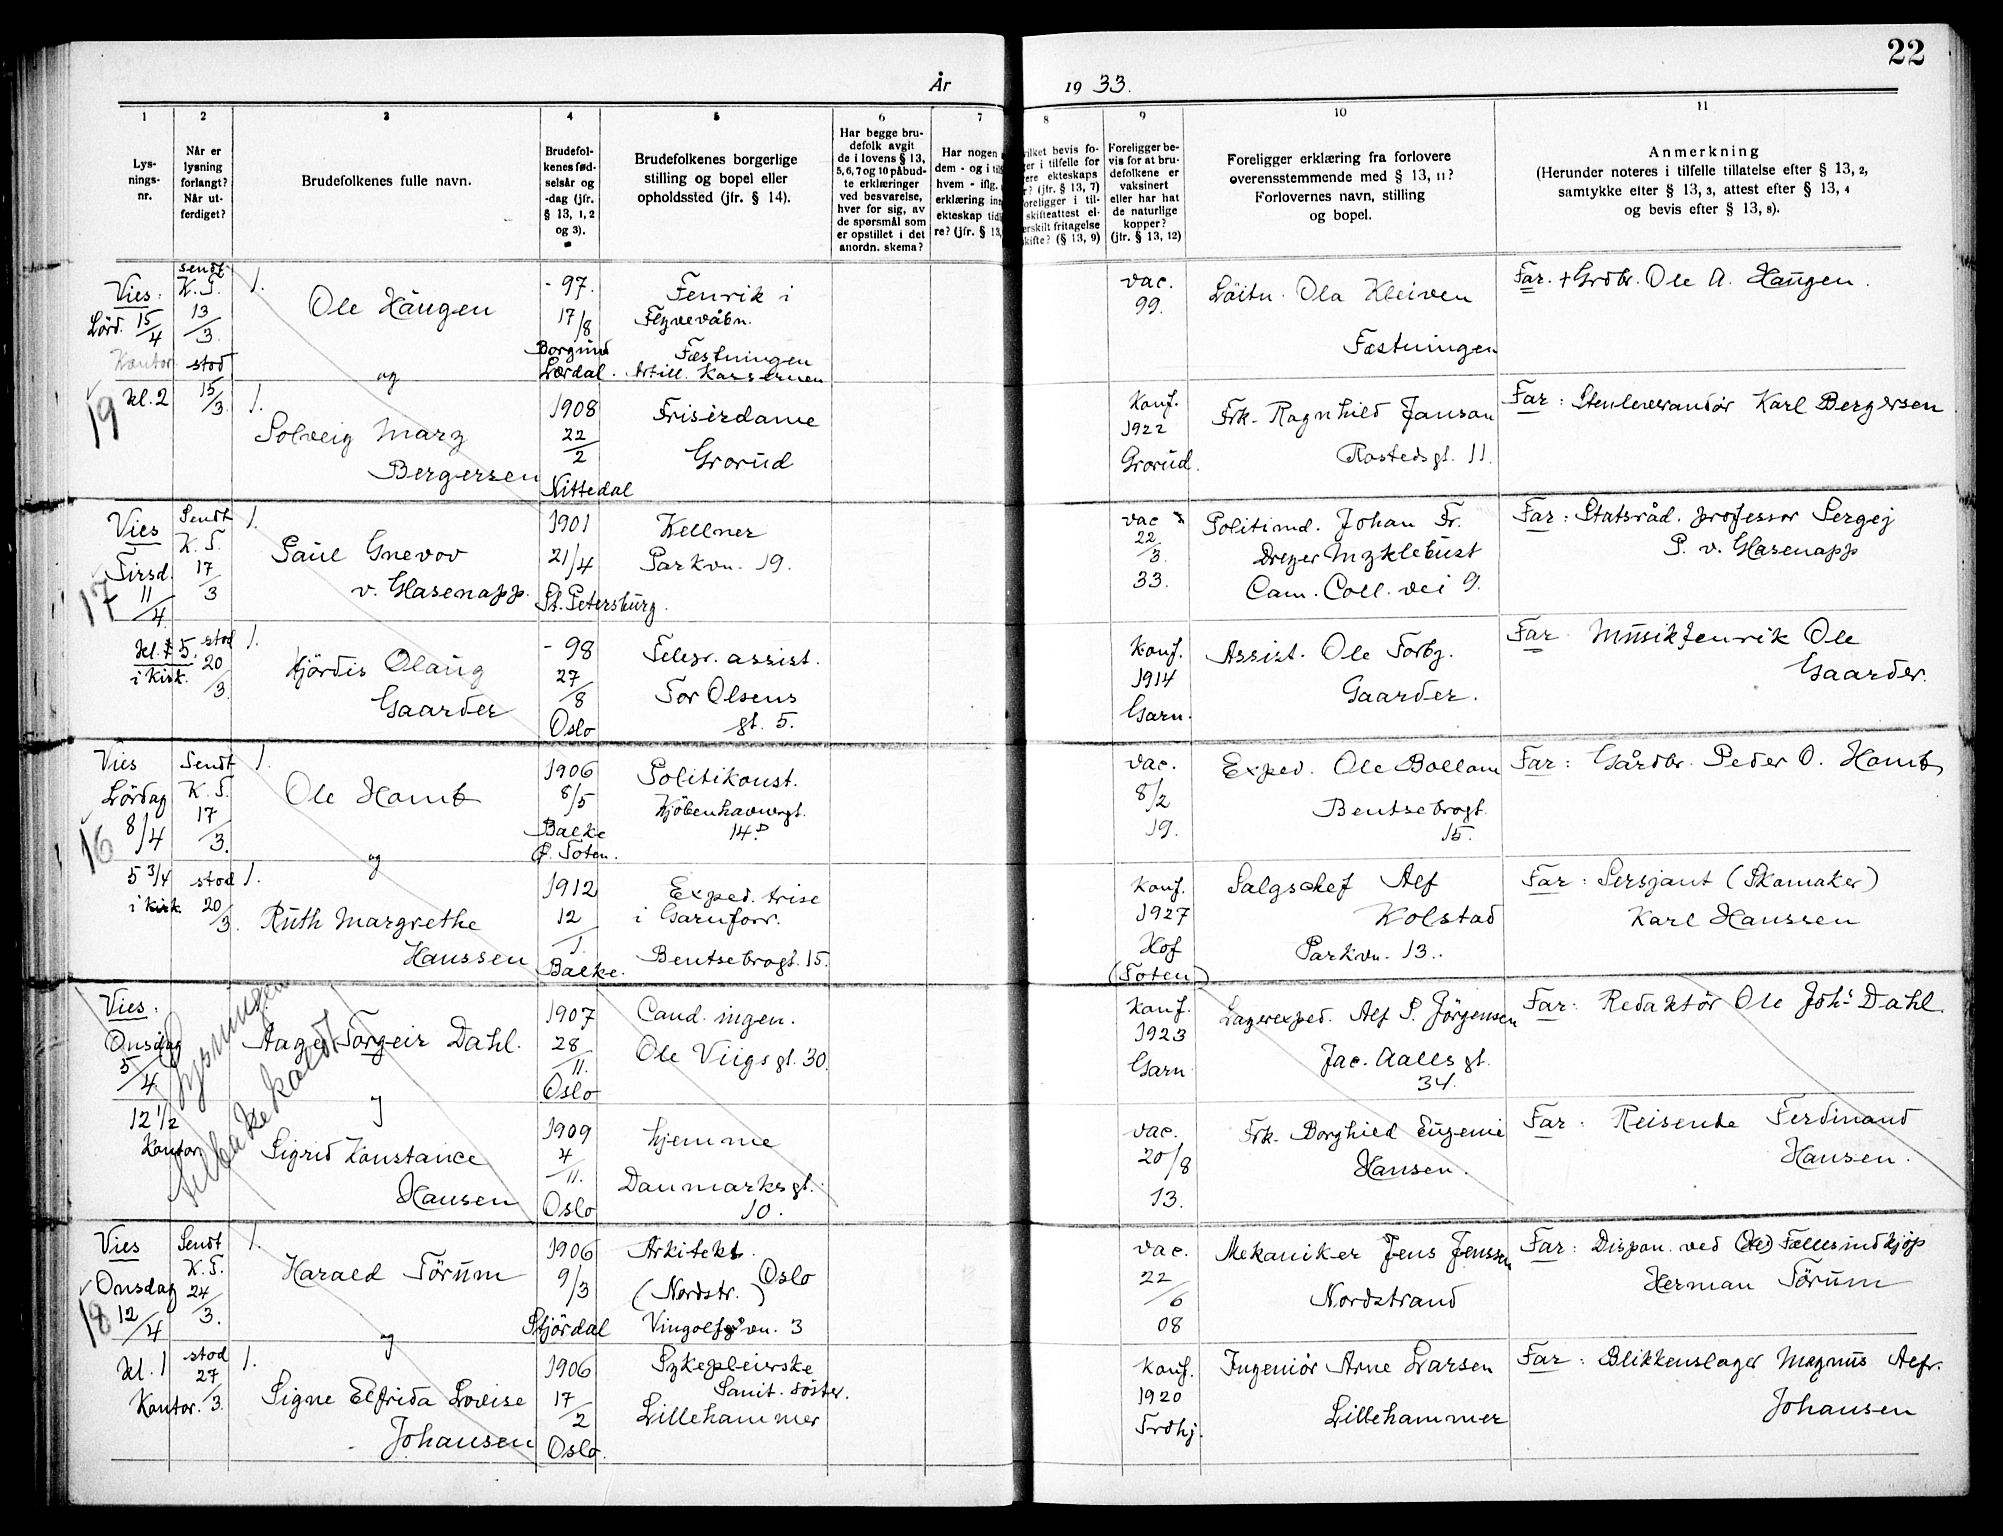 22
År 1933.
1
2
3
4
5
6
7
8
9
10
11
Lys-
nings-
nr.
Når er
lysning
forlangt?
Når ut-
ferdiget?
Brudefolkenes fulle navn.
Brudefol-
kenes fød-
selsår og
-dag (jfr.
§ 13, 1, 2
og 3).
Brudefolkenes borgerlige
stilling og bopel eller
opholdssted (jfr. § 14).
Har begge bru-
defolk avgit
de i lovens § 13,
5, 6, 7 og 10 påbud-
te erklæringer
ved besvarelse,
hver for sig, av
de spørsmål som
er opstillet i det
anordn. skema?
Har nogen
dem - og i til
hvem - iflg.
erklæring in
ekteskap tid
re? (jfr. § 13,
vilket bevis fo-
ger i tilfelle for
ere ekteskaps
r? (jfr. § 13, 7)
oreligger i til-
skifteattest el-
erskilt fritagelse
kifte? (§ 13, 9)
Foreligger be-
vis for at bru-
defolkene er
vaksinert
eller har hat
de naturlige
kopper?
(jfr. § 13, 12)
Foreligger erklæring fra forlovere
overensstemmende med § 13, 11?
Forlovernes navn, stilling
og bopel.
Anmerkning
(Herunder noteres i tilfelle tillatelse efter § 13, 2,
samtykke efter § 13, 3, attest efter § 13, 4
og bevis efter § 13, 8).
Vies.
Lörd. 15/4
Kontor
kl. 2
19
sendt
K. T.
13/3
stod
15/3
1.
Ole Haugen
og
1.
Solveig Marg
Bergersen
- 97.
17/8
Borgund
Lærdal.
1908
22/2
Nittedal
Fenrik i
Flyvevåbn.
Fæstningen
Artill. Kasernen
Frisérdame
Grorud
vac.
99.
Konf.
1922
Grorud.
Löitn. Ola Kleiven
Fæstningen
Frk. Ragnhild Janson
Rostedsgt. 11.
Far. + Grdbr. Ole A. Haugen.
Far: Stenleverandör Karl Bergersen
Vies
Tirsd.
11/4
kl. 5.
i Kirk.
17
Sendt
K. T.
17/3
stod
20/3.
1.
Paul Gnevov
v. Glasenapp.
1.
Hjördis Olaug
Gaarder
1901
21/4
St. Petersburg.
- 98
27/8
Oslo
Kellner
Parkvn. 19.
Telegr. assist.
Tor Olsens
gt. 5.
vac
22/3.
33.
Konf.
1914
Garn.
Politimd. Johan Fr.
Dreyer Myklebust
Cam. Coll. vei 9.
Assist. Ole Torbj.
Gaarder.
Far: Statsråd. professor Sergej
P. v. Glasenapp
Far. Musikfenrik Ole
Gaarder.
Vies
Lördag
8/4
5 3/4
i Kirk.
16
Sendt
K. T.
17/3.
stod
20/3.
1.
Ole Homb
og
1.
Ruth Margrethe
Hanssen
1906
8/5
Balke
Ø. Toten.
1912
12/1.
Balke.
Politikonst.
Kjöbenhavnergt.
14 D
Exped. trise
i Garnforr.
Bentsebrogt. 15.
vac.
8/2
19.
Konf.
1927
Hof
(Toten)
Exped. Ole Bollom
Bentsebrogt.
15.
Salgschef Alf
Kolstad
Parkvn. 13.
Far: Gårdbr. Peder O. Homb
Far: Sersjant (Skomaker)
Karl Hanssen
Vies.
Onsdag
5/4
12 1/2
Kontor
Lysningen
tilbakekaldt
Aage Torgeir Dahl.
Sigrid Konstance
Hansen
1907
28/11.
Oslo
1909
4/11.
Oslo
Cand. ingen.
Ole Viigs gt. 30.
hjemme
Danmarksgt.
10.
Konf.
1923
Garn
vac.
20/8
13.
Lagerexped. Alf S. Jörgensen
Jac. Aalls gt.
34.
Frk. Borghild Eugenie
Hansen.
Far: Redaktör Ole Johs Dahl
Far: Reisende Ferdinand
Hansen.
Vies
Onsdag
12/4
kl. 1
Kontor.
18
Sendt
K. T.
24/3.
stod
27/3.
1.
Harald Törum
og
1.
Signe Elfrida Lovise
Johansen
1906
9/3
Stjördal
1906
17/2
Oslo.
Arkitekt.
(Nordstr.) Oslo
Vingolfsvn. 3
Sykepleierske
Sanit. söster.
Lillehammer
vac.
22/6
08
Konf.
1920
Trdhj.
Mekaniker Jens Jenssen
Nordstrand
Ingeniör Arne Larsen
Lillehammer
Far: Dispon. ved Fællesindkjøp
Herman Törum
Far: Blikkenslager Magnus Alfr.
Johansen